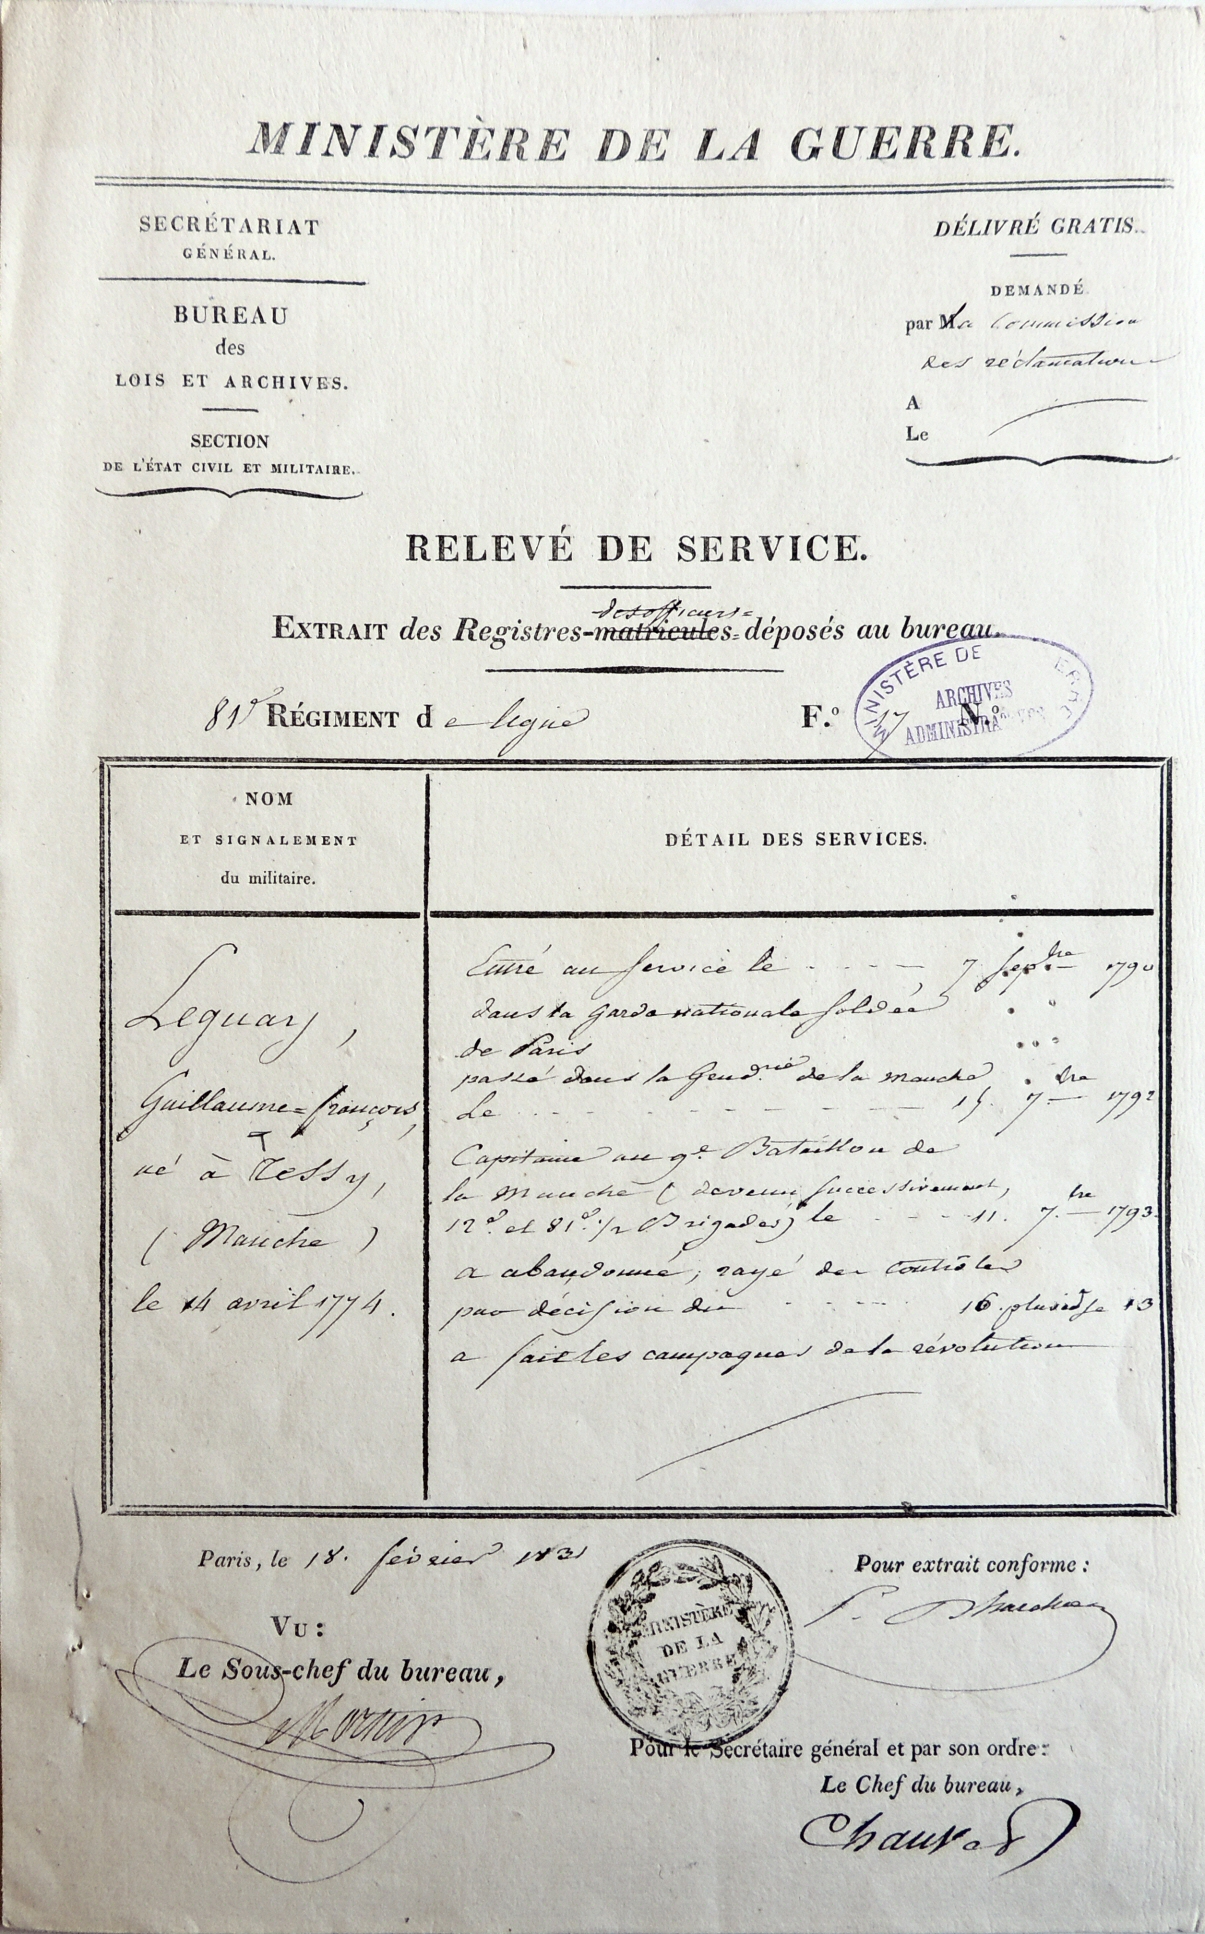 MINISTÈRE DE LA GUERRE.
SECRÉTARIAT
GÉNÉRAL.
BUREAU
des
LOIS ET ARCHIVES.
SECTION
DE L'ÉTAT CIVIL ET MILITAIRE.
DÉLIVRÉ GRATIS.
DEMANDÉ
par M la Commission
des réclamations
A
Le
RELEVÉ DE SERVICE.
des officiers
EXTRAIT des Registres-matricules déposés au bureau.
81e RÉGIMENT de ligne
F.º 17 N.º
MINISTÈRE DE GUERRE
ARCHIVES
ADMINISTRATIVES
NOM
ET SIGNALEMENT
du militaire.
DÉTAIL DES SERVICES.
Leguay,
Guillaume=françois,
né à Tessy,
(Manche)
le 14 avril 1774.
Entré au service le 7 Septbre 1790
dans la garde nationale soldée
de Paris
passé dans la Gend.rie de la manche
Le 15. 7bre 1792
Capitaine au 9e Bataillon de
la Manche (devenu successivement,
12e et 81e 1/2 Brigades) le 11. 7bre 1793.
a abandonné; rayé des contrôles
par décision du 16 pluviôse 13
a fait les campagnes de la révolution
Paris, le 18. février 1831
VU:
Le Sous-chef du bureau,
MINISTÈRE
DE LA
GUERRE
Pour extrait conforme:
Pour le Secrétaire général et par son ordre:
Le Chef du bureau,